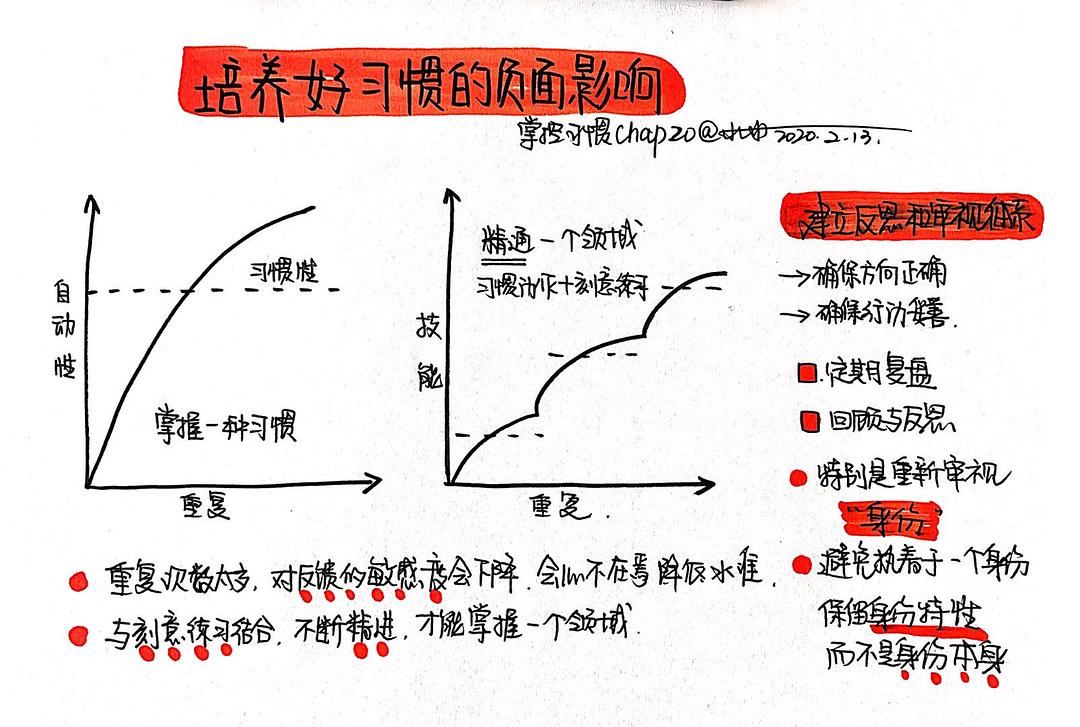 培养好习惯的负面影响
掌控习惯Chap20@ 2020.2.13.
自动性
习惯性
掌握一种习惯
重复
技能
精通一个领域
习惯动作+刻意练习
重复.
建立反思和审视体系
→确保方向正确
→确保行动妥善.
定期复盘
回顾与反思
特别是重新审视
"身份"
避免执着于一个身份
保留身份特性
而不是身份本身
重复次数太多,对反馈的敏感度会下降.会心不在焉降低水准.
与刻意练习结合,不断精进,才能掌握一个领域.